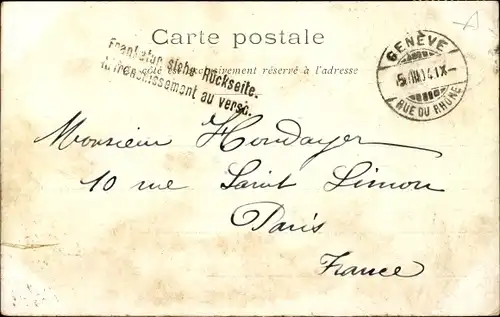 Carte postale
Ce côté est exclusivement réservé à l'adresse
Frankatur siehe Rückseite.
Affranchissement au verso.
GENÈVE
RUE DU RHÔNE
Monsieur
10 rue Saint Simon
Paris
France